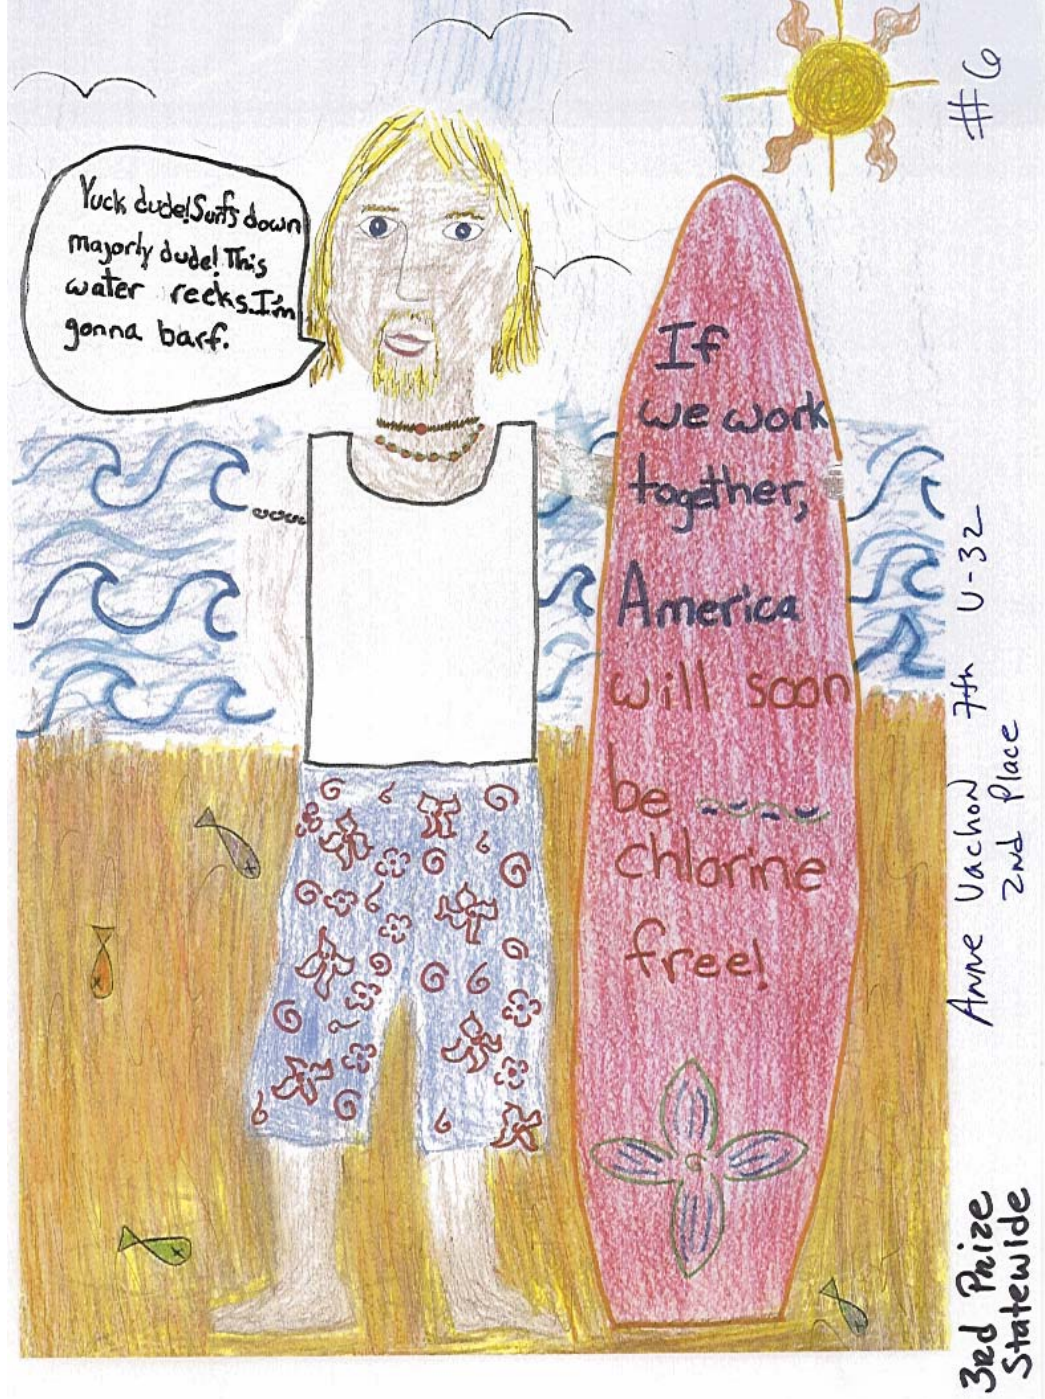 #6
Yuck dude! Surfs down
majorly dude! This
water reeks. I'm
gonna barf.
If
we work
together,
America
will soon
be
chlorine
free!
Anne Vachon 7th U-32
2nd Place
3rd Prize
Statewide